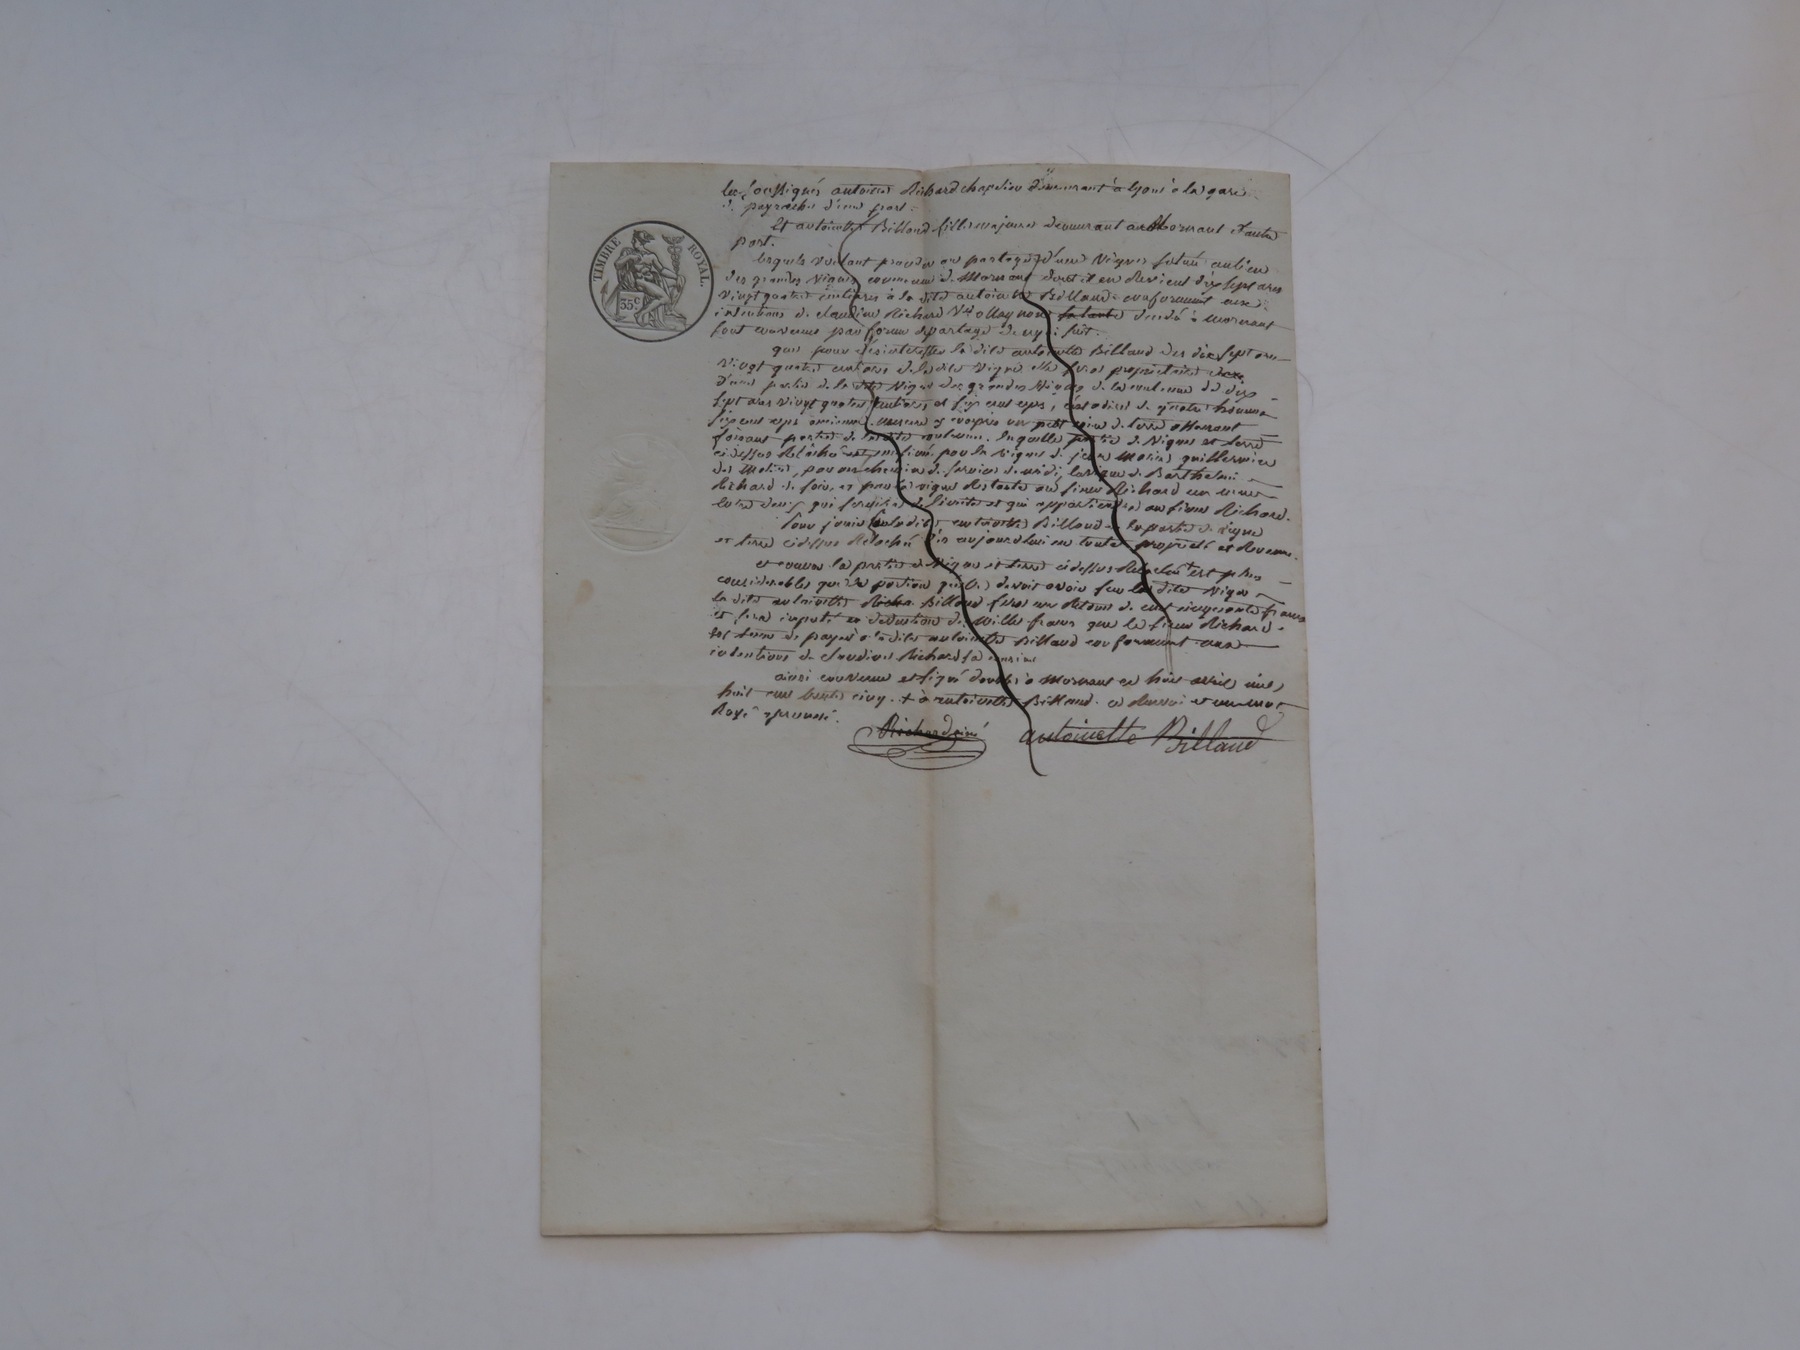 TIMBRE ROYAL.
35c
les soussignés antoine Richard chapelier demeurant à lyon à la gare
de peyrache d'une part
Et antoinette Billaud fille majeure demeurant a Mornant d'autre
part.
lesquels voulant proceder au partage d'une vigne située au lieu
des grandes vignes commune de Mornant dont il en revient dix sept ares
vingt quatre centiares à la dite antoinette Billaud conformement aux
intentions de claudine Richard Ve ollagnon sa tante décédé à mornant
sont convenus par forme de partage de ce qui suit.
que pour désinteresser la dite antoinette Billaud des dix sept ares
vingt quatre centiares de la dite vigne elle sera propriétaire
d'une partie de la dite vigne des grandes vignes de la contenue de dix
sept ares vingt quatre centiares et
ancienne mesure y compris un petit coin de terre attenant
faisant partie de la dite contenue. laquelle partie de vigne et terre
cidessus relaché est confiné par la vigne de
de midi, la vigne de Barthelmi
Richard de soir, et par la vigne restante au sieur Richard
entre deux qui servira de limite et qui appartiendra au sieur Richard.
Pour jouir par la dite antoinette Billaud de la partie de vigne
et terre cidessus relaché dès aujourdhui en toute propriété et revenu.
et comme la partie de vigne et terre cidessus relaché est plus
considerable que la portion qu'elle devoit avoir sur la dite vigne
la dite antoinette Billaud fera un retour de cent cinquante francs
et sera imputé en deduction de mille francs que le sieur Richard
est tenu de payer à la dite antoinette Billaud conformement aux
intentions de claudine Richard sa cousine
ainsi convenu et signé double à mornant ce huit avril mil
huit cent trente cinq. + à antoinette Billaud et un mot
Rayé approuvé.
Richard ainé antoinette Billaud